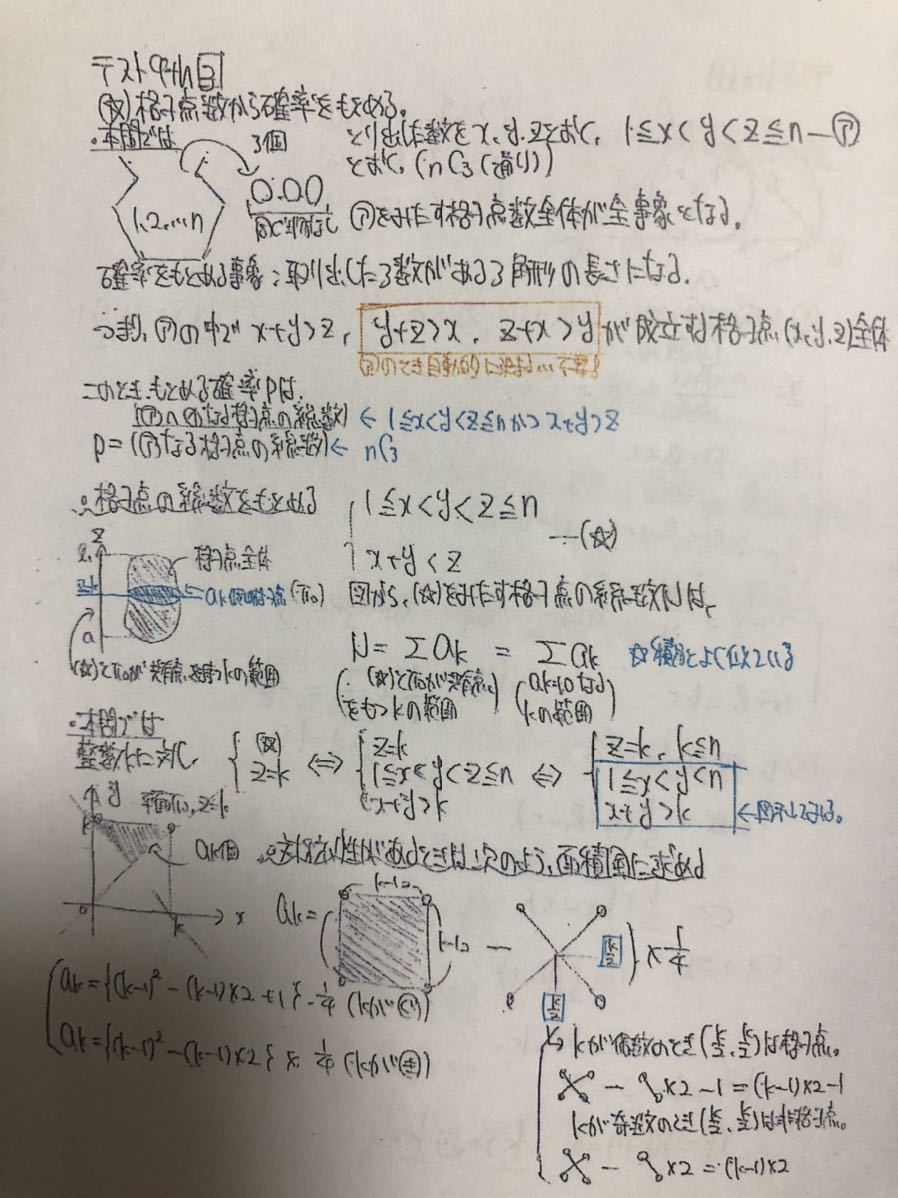 テスト9th 3
(☆)格子点数から確率をもとめる。
・本問では
3個
1,2,…,n
とり出した数をx,y,zとおく, 1≦x<y<z≦n―㋐
とおく。(nC3(通り))
㋐をみたす格子点数全体が全事象となる。
確率をもとめる事象:取り出した3数がある3角形の長さになる。
つまり、㋐の中で x+y>z, y+z>x, z+x>y が成立する格子点(x,y,z)全体
㋐のとき自動的に決まる…不要!
このとき、もとめる確率Pは、
←1≦x<y<z≦nかつx+y>z
P= (㋐なる格子点の総数) ← nC3
。格子点の総数をもとめる
1≦x<y<z≦n
x+y<z
―(☆)
z
格子点全体
z=k
ak個の格子点
a
図から、(☆)をみたす格子点の総数Nは、
N= Σak = Σak ☆積分とよく似ている
(☆)と が共有点をもつkの範囲
(ak≠0なるkの範囲)
・本問では
整数kに対し,
(☆)
z=k
⇔
z=k
1≦x<y<z≦n
x+y>k
⇔
z=k, k≦n
1≦x<y<n
x+y>k
←図示してみる。
y
k
z=k
ak個
o
k
x
。対称性があるときは次のよう、面積風に求める
ak=
k-1コ
k-1コ
―
k/2
k/2
×1/4
ak={(k-1)²-(k-1)×2+1}・1/4 (kが偶)
ak={(k-1)²-(k-1)×2}×1/4 (kが奇)
kが偶数のとき(k/2,k/2)は格子点。
×2-1=(k-1)×2-1
kが奇数のとき(k/2,k/2)は非格子点。
×2=(k-1)×2